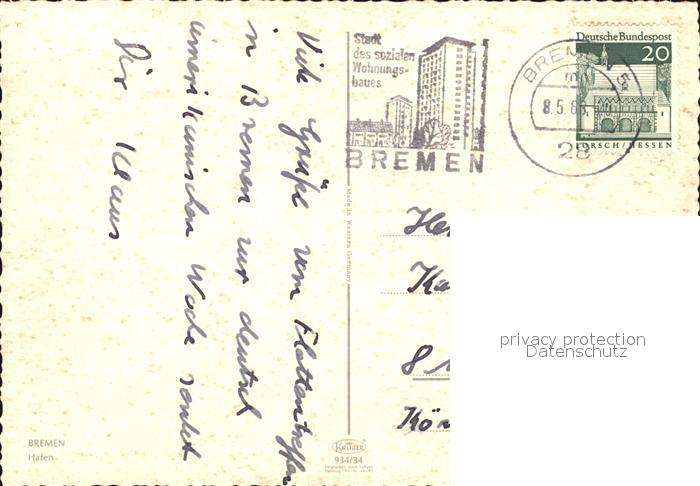 Viele Grüße vom Flottentreffen
in Bremen zur deutsch
amerikanischen Woche sendet
Dir Klaus
BREMEN
Hafen
Made in Western Germany
KRÜGER
934/34
Stadt
des sozialen
Wohnungs-
baues
BREMEN
BREMEN 5
8.5.6
28
Deutsche Bundespost
20
LORSCH/HESSEN
He
Ka
8
Kön
privacy protection
Datenschutz